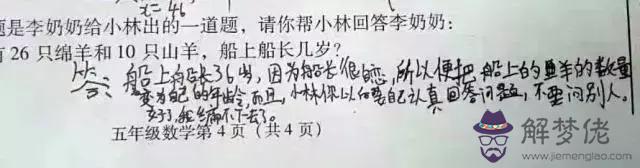 x=46
题是李奶奶给小林出的一道题，请你帮小林回答李奶奶：
有 26 只绵羊和 10 只山羊，船上船长几岁？
答：船上船长36岁，因为船长很恋，所以便把船上的羊的数量
变为自己的年龄，而且，小林你以后要自己认真回答问题，不要问别人。
好了，我编不下去了。
五年级数学第 4 页（共 4 页）
解梦佬
www.jiemenglao.com